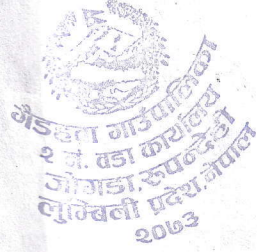 गैडहवा गाउँपालिका
२ नं. वडा कार्यालय
जोगडा, रुपन्देही
लुम्बिनी प्रदेश, नेपाल
२०७३